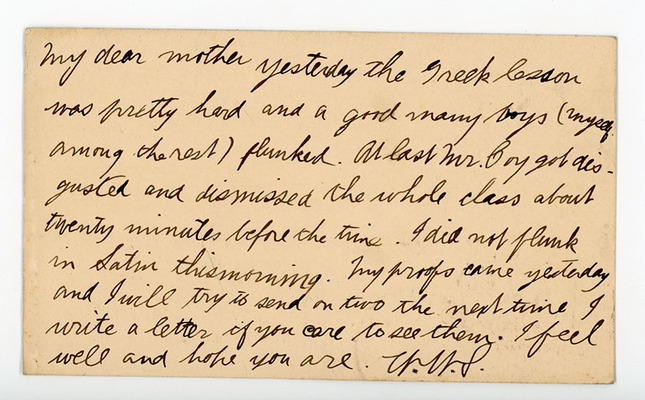 My dear mother yesterday the Greek lesson
was pretty hard and a good many boys (myself
among the rest) flunked. At last Mr. Foy got dis-
gusted and dismissed the whole class about
twenty minutes before the time. I did not flunk
in Latin this morning. My proofs came yesterday
and I will try to send on two the next time I
write a letter if you care to see them. I feel
well and hope you are. W.W.S.